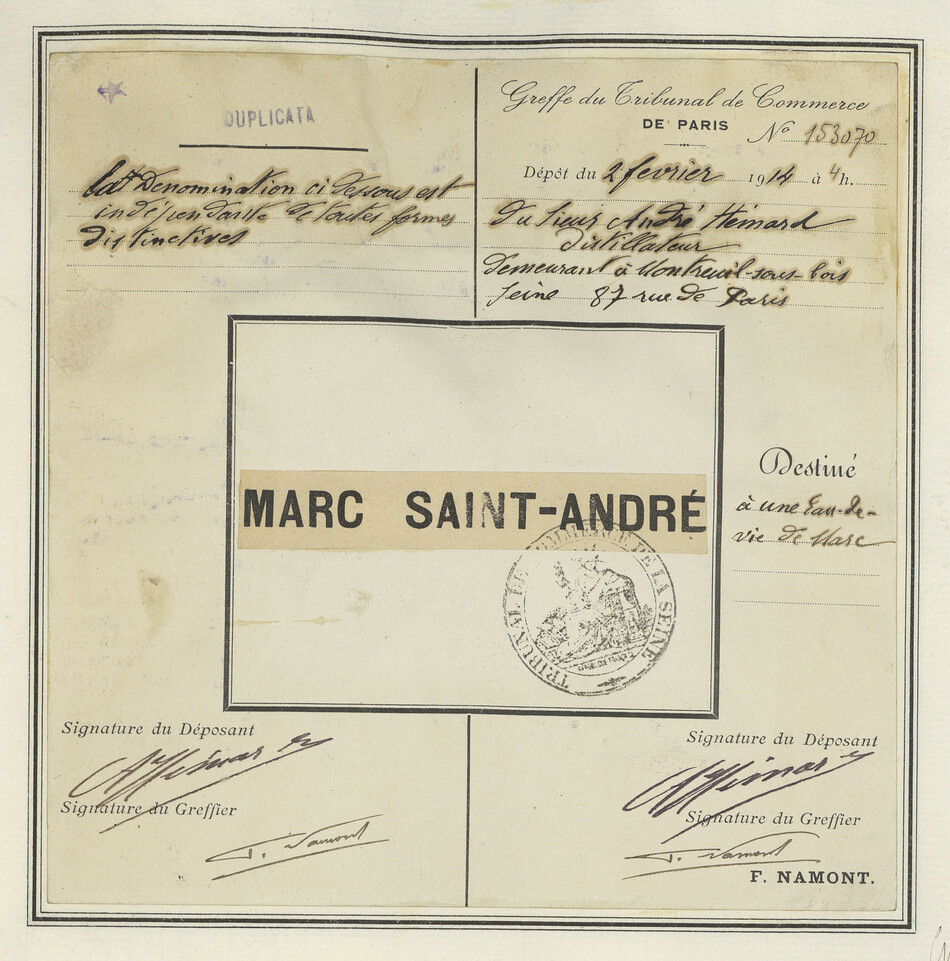 DUPLICATA
Denomination ci dessous est
indépendante de toutes formes
distinctives
Greffe du Tribunal de Commerce
DE PARIS
No 153070
Dépôt du 2 fevrier 1914 à 4 h.
du sieur André Hémard
Distillateur
demeurant à Montreuil-sous-bois
Seine 87 rue de Paris
MARC SAINT-ANDRÉ
TRIBUNAL DE COMMERCE DE LA SEINE
Destiné
à une Eau-de-
vie de Marc
Signature du Déposant
AHémard
Signature du Greffier
F. Namont
Signature du Déposant
AHémard
Signature du Greffier
F. Namont
F. NAMONT.